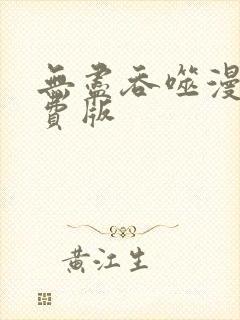 無盡吞噬漫
費版
黃江生